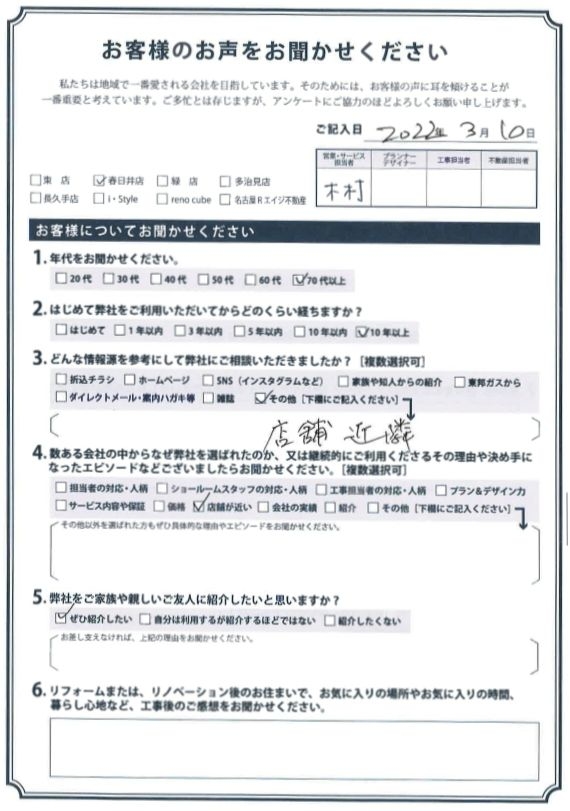 お客様のお声をお聞かせください
私たちは地域で一番愛される会社を目指しています。そのためには、お客様の声に耳を傾けることが
一番重要と考えています。ご多忙とは存じますが、アンケートにご協力のほどよろしくお願い申し上げます。
ご記入日 2022年 3月 10日
営業・サービス担当者 プランナーデザイナー 工事担当者 不動産担当者
木村
□東 店 ☑春日井店 □緑 店 □多治見店
□長久手店 □i・Style □reno cube □名古屋Rエイジ不動産
お客様についてお聞かせください
1. 年代をお聞かせください。
□20代 □30代 □40代 □50代 □60代 ☑70代以上
2. はじめて弊社をご利用いただいてからどのくらい経ちますか？
□はじめて □1年以内 □3年以内 □5年以内 □10年以内 ☑10年以上
3. どんな情報源を参考にして弊社にご相談いただきましたか？［複数選択可］
□折込チラシ □ホームページ □SNS（インスタグラムなど） □家族や知人からの紹介 □東邦ガスから
□ダイレクトメール・案内ハガキ等 □雑誌 ☑その他［下欄にご記入ください］
店舗近隣
4. 数ある会社の中からなぜ弊社を選ばれたのか、又は継続的にご利用くださるその理由や決め手に
なったエピソードなどございましたらお聞かせください。［複数選択可］
□担当者の対応・人柄 □ショールームスタッフの対応・人柄 □工事担当者の対応・人柄 □プラン&デザイン力
□サービス内容や保証 □価格 ☑店舗が近い □会社の実績 □紹介 □その他［下欄にご記入ください］
その他以外を選ばれた方もぜひ具体的な理由やエピソードをお聞かせください。
5. 弊社をご家族や親しいご友人に紹介したいと思いますか？
☑ぜひ紹介したい □自分は利用するが紹介するほどではない □紹介したくない
お差し支えなければ、上記の理由をお聞かせください。
6. リフォームまたは、リノベーション後のお住まいで、お気に入りの場所やお気に入りの時間、
暮らし心地など、工事後のご感想をお聞かせください。